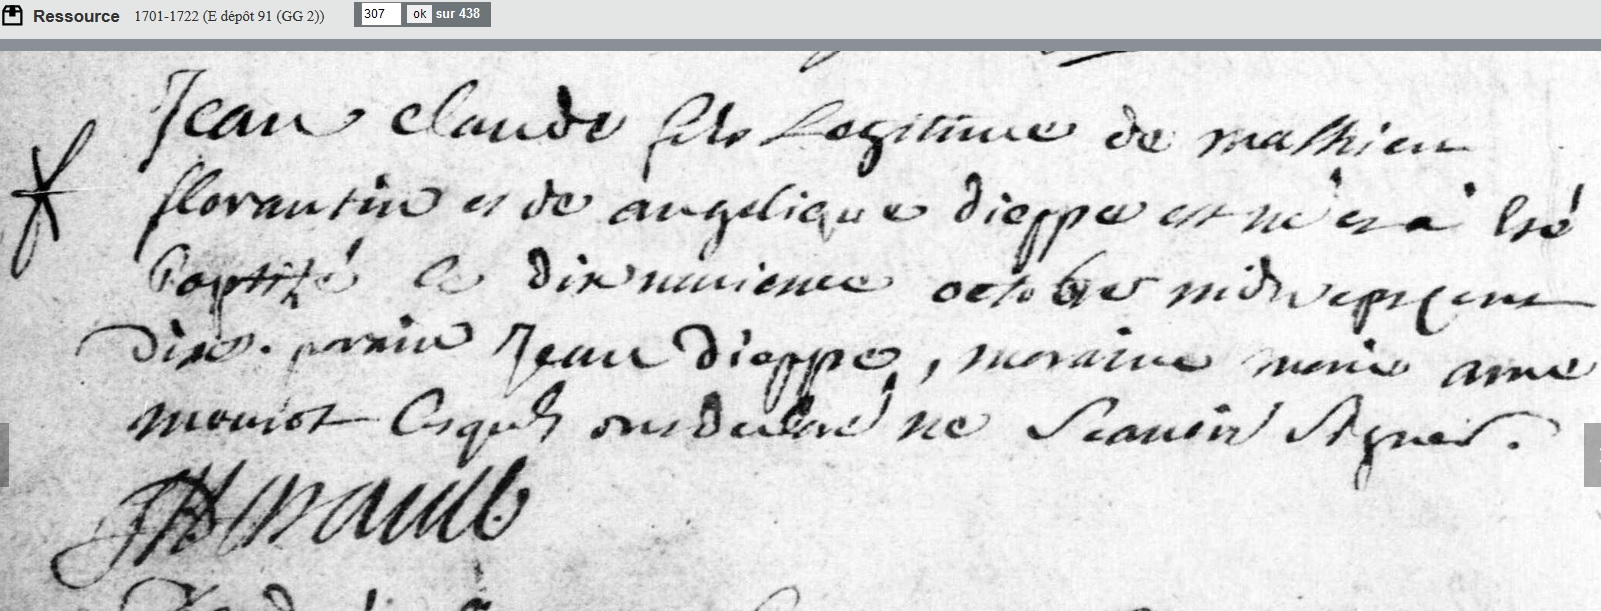 Ressource 1701-1722 (E dépôt 91 (GG 2)) 307 ok sur 438
Jean claude fils Legitime de mathieu
florantin et de angelique dieppe est né et a esté
Baptizé le dixneuvieme octobre mil sept cent
Dix. parain Jean Dieppe, maraine marie anne
mouiot Lesquels ont declaré ne scauoir signer.